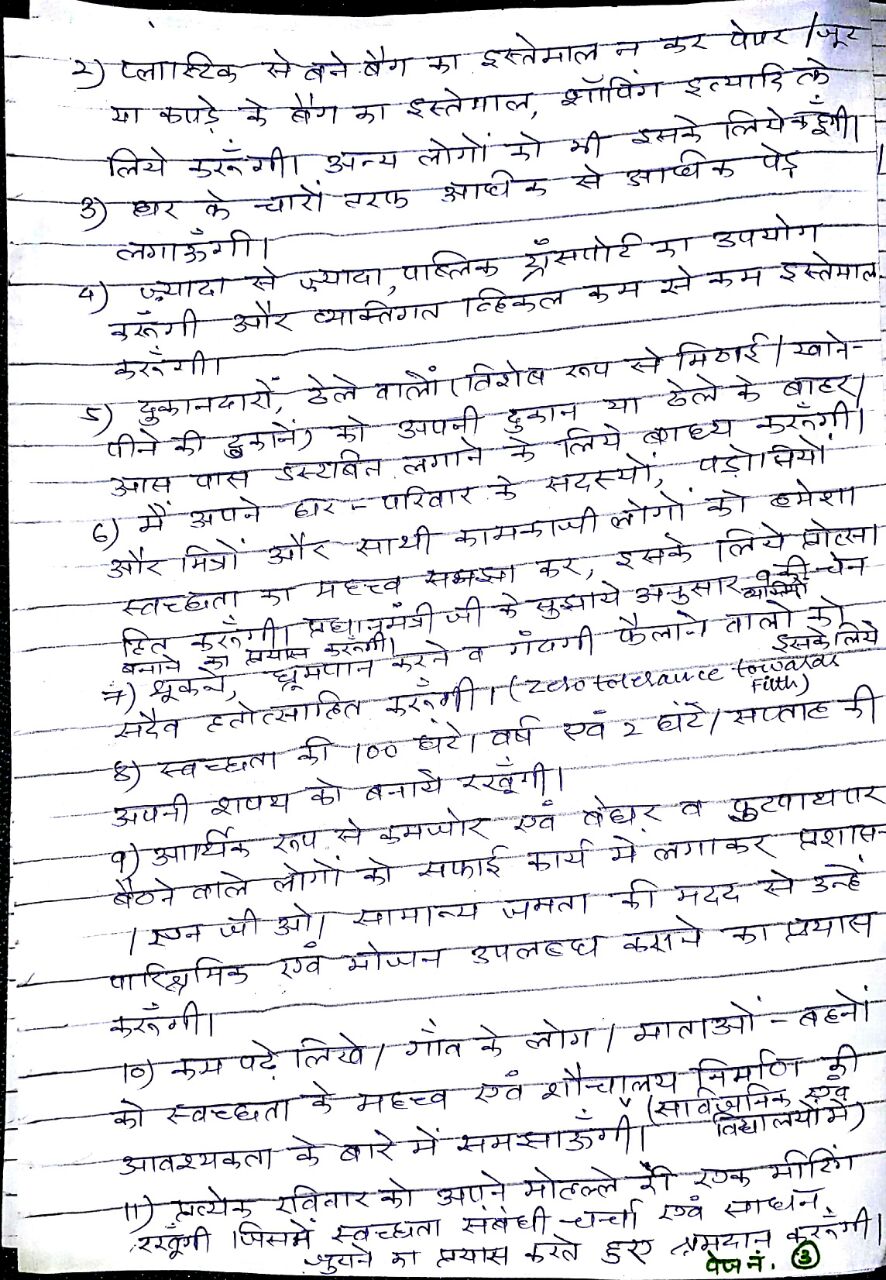 2) प्लास्टिक से बने बैग का इस्तेमाल न कर पेपर / जूट
या कपड़े के बैग का इस्तेमाल, शॉपिंग इत्यादि के
लिये करूँगी। अन्य लोगों को भी इसके लिये कहूँगी।
3) घर के चारों तरफ अधिक से अधिक पेड़
लगाऊँगी।
4) ज़्यादा से ज़्यादा, पब्लिक ट्रांसपोर्ट का उपयोग
करूँगी और व्यक्तिगत व्हिकल कम से कम इस्तेमाल
करूँगी।
5) दुकानदारों, ठेले वालों (विशेष रूप से मिठाई / खाने-
पीने की दुकानें) को अपनी दुकान या ठेले के बाहर /
आस पास डस्टबिन लगाने के लिये बाध्य करूँगी।
6) मैं अपने घर - परिवार के सदस्यों, पड़ोसियों
और मित्रों और साथी कामकाजी लोगों को हमेशा
स्वच्छता का महत्त्व समझा कर, इसके लिये प्रोत्सा
हित करूँगी। प्रधानमंत्री जी के सुझाये अनुसार 9 की चेन
बनाने का प्रयास करूँगी।
7) थूकने, धूमपान करने व गंदगी फैलाने वालों को
इसके लिये
सदैव हतोत्साहित करूँगी। (Zero tolerance towards
Filth)
8) स्वच्छता की 100 घंटे / वर्ष एवं 2 घंटे / सप्ताह की
अपनी शपथ को बनाये रखूँगी।
9) आर्थिक रूप से कमजोर एवं बेघर व फुटपाथ पर
बैठने वाले लोगों को सफाई कार्य में लगाकर प्रशास-
/ एन जी ओ / सामान्य जनता की मदद से उन्हें
पारिश्रमिक एवं भोजन उपलब्ध कराने का प्रयास
करूँगी।
10) कम पढ़े लिखे / गाँव के लोग / माताओं - बहनों
को स्वच्छता के महत्त्व एवं शौचालय निर्माण की
(सार्वजनिक एवं
विद्यालयों में)
आवश्यकता के बारे में समझाऊँगी।
11) प्रत्येक रविवार को अपने मोहल्ले में एक मीटिंग
रखूँगी जिसमें स्वच्छता संबंधी चर्चा एवं साधन
जुटाने का प्रयास करते हुए श्रमदान करूँगी।
पेज नं. 3